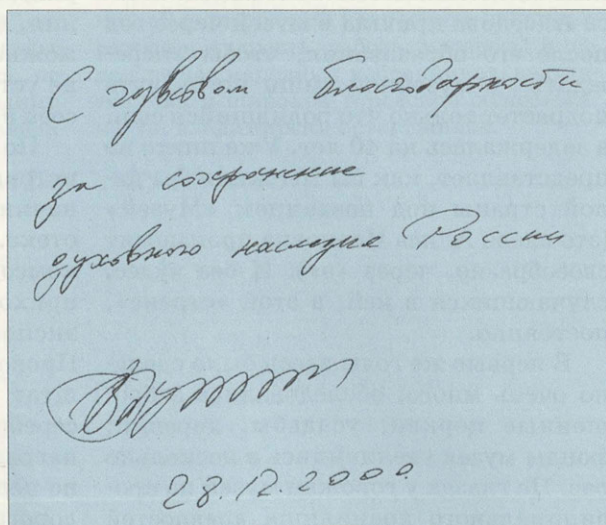 С чувством благодарности
за сохранение
духовного наследие России
28.12.2000